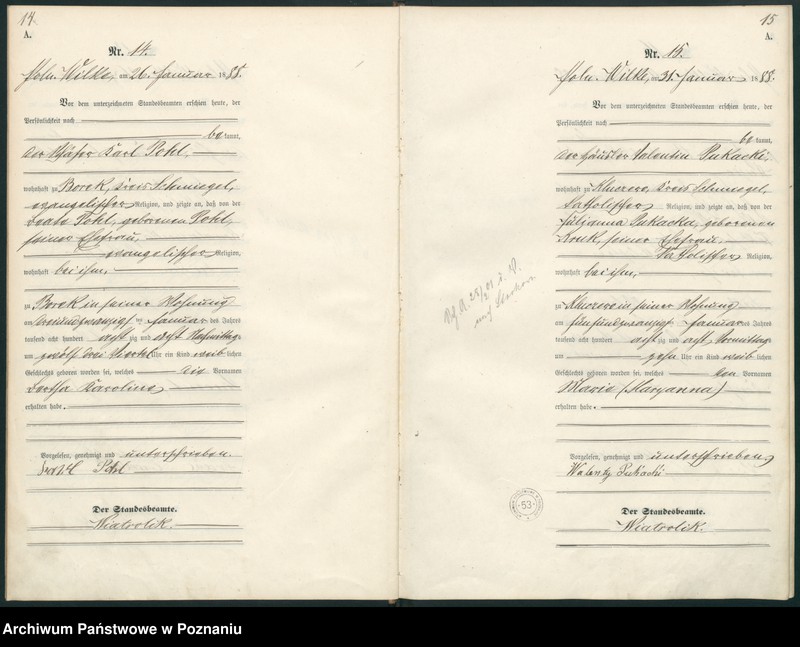 14
A.
Nr. 14.
Poln. Wilke, am 26. Januar 1888.
Vor dem unterzeichneten Standesbeamten erschien heute, der
Persönlichkeit nach
be kannt,
der Schäfer Karl Pohl.
wohnhaft zu Borek, Kreis Schmiegel,
evangelischer Religion, und zeigte an, daß von der
Beate Pohl, geborenen Pohl,
seiner Ehefrau,
evangelischer Religion,
wohnhaft bei ihm,
zu Borek in seiner Wohnung
am dreiundzwanzigsten Januar des Jahres
tausend acht hundert acht zig und acht Nachmittags
um zwölf drei Viertel Uhr ein Kind weib lichen
Geschlechts geboren worden sei, welches die Vornamen
Bertha Karoline
erhalten habe.
Vorgelesen, genehmigt und unterschrieben.
Karl Pohl
Der Standesbeamte.
Wiatrolik.
15
A.
Nr. 15.
Poln. Wilke, am 31. Januar 1888.
Vor dem unterzeichneten Standesbeamten erschien heute, der
Persönlichkeit nach
be kannt,
der Häusler Valentin Pukacki.
wohnhaft zu Kreis Schmiegel,
katholischer Religion, und zeigte an, daß von der
Juljanna Pukacka, geborenen
Kruk, seiner Ehefrau,
katholischer Religion,
wohnhaft bei ihm,
zu in seiner Wohnung
am fünfundzwanzigsten Januar des Jahres
tausend acht hundert acht zig und acht Vormittags
um zehn Uhr ein Kind weib lichen
Geschlechts geboren worden sei, welches den Vornamen
Marie (Maryanna)
erhalten habe.
Vorgelesen, genehmigt und unterschrieben
Walenty Pukacki
Der Standesbeamte.
Wiatrolik.
53
Archiwum Państwowe w Poznaniu